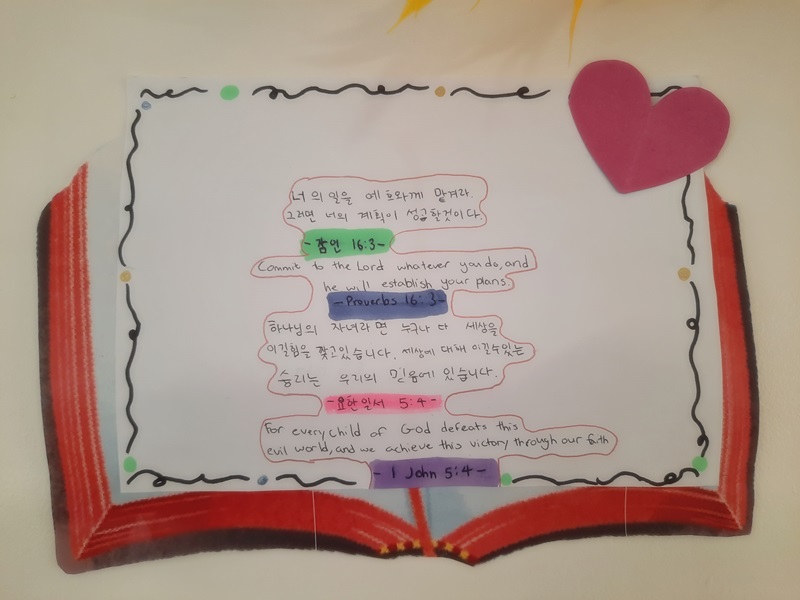 너의 일을 여호와께 맡겨라.
그러면 너의 계획이 성공할것이다.
-잠언 16:3-
Commit to the Lord whatever you do, and
he will establish your plans.
-Proverbs 16:3-
하나님의 자녀라면 누구나 다 세상을
이길힘을 갖고있습니다. 세상에 대해 이길수있는
승리는 우리의 믿음에 있습니다.
-요한일서 5:4-
For every child of God defeats this
evil world, and we achieve this victory through our faith
-1 John 5:4-